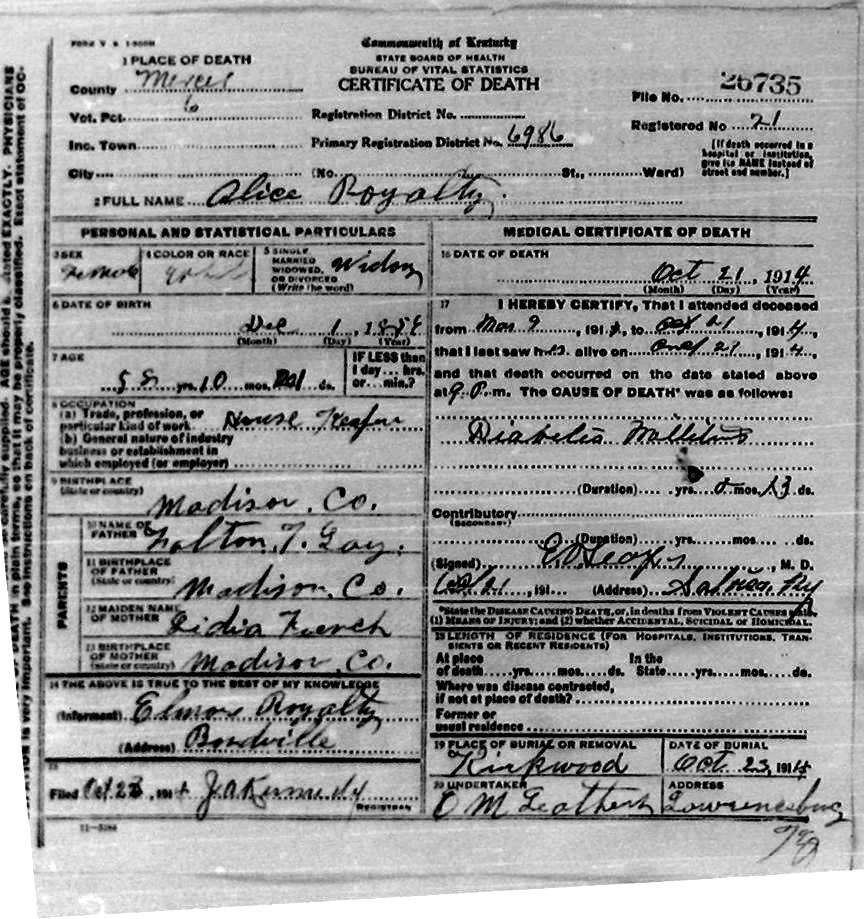 FORM V. S. 1-500M
Commonwealth of Kentucky
STATE BOARD OF HEALTH
BUREAU OF VITAL STATISTICS
CERTIFICATE OF DEATH
1 PLACE OF DEATH
County Mercer
Vot. Pct. 6
Inc. Town
City
Registration District No.
Primary Registration District No. 6986
(No. St., Ward)
File No. 26735
Registered No. 21
[If death occurred in a hospital or institution, give its NAME instead of street and number.]
2 FULL NAME Alice Royalty
PERSONAL AND STATISTICAL PARTICULARS
3 SEX Female
4 COLOR OR RACE White
5 SINGLE MARRIED WIDOWED, OR DIVORCED (Write the word) Widow
6 DATE OF BIRTH
Dec 1, 18
(Month) (Day) (Year)
7 AGE
yrs. 10 mos. ds.
IF LESS than 1 day... hrs. or... min.?
8 OCCUPATION
(a) Trade, profession, or particular kind of work House Keeper
(b) General nature of industry business or establishment in which employed (or employer)
9 BIRTHPLACE
(State or country) Madison. Co.
PARENTS
10 NAME OF FATHER Falton. T. Gay.
11 BIRTHPLACE OF FATHER
(State or country) Madison. Co.
12 MAIDEN NAME OF MOTHER Lidia French
13 BIRTHPLACE OF MOTHER
(State or country) Madison Co.
14 THE ABOVE IS TRUE TO THE BEST OF MY KNOWLEDGE
(Informant) Elmore Royalty
(Address) Bondville
15
Filed Oct 23, 1914 J A Kennedy
REGISTRAR
11-3184
MEDICAL CERTIFICATE OF DEATH
16 DATE OF DEATH
Oct 21, 1914
(Month) (Day) (Year)
17 I HEREBY CERTIFY, That I attended deceased
from Mar 9, 191, to Oct 21, 1914,
that I last saw h alive on Oct 21, 1914,
and that death occurred on the date stated above
at 9 P. m. The CAUSE OF DEATH* was as follows:
Diabetis Millitus
(Duration) yrs. mos. 13 ds.
Contributory
(SECONDARY)
(Duration) yrs. mos. ds.
(Signed) , M. D.
Oct 21, 191 (Address) Salvisa, Ky
*State the DISEASE CAUSING DEATH, or, in deaths from VIOLENT CAUSES
(1) MEANS OF INJURY; and (2) whether ACCIDENTAL, SUICIDAL or HOMICIDAL.
18 LENGTH OF RESIDENCE (FOR HOSPITALS, INSTITUTIONS, TRANSIENTS OR RECENT RESIDENTS)
At place of death yrs. mos. ds. In the State yrs. mos. ds.
Where was disease contracted,
if not at place of death?
Former or
usual residence
19 PLACE OF BURIAL OR REMOVAL
Kirkwood
DATE OF BURIAL
Oct 23, 1914
20 UNDERTAKER
O M Leathers
ADDRESS
Lawrenceburg